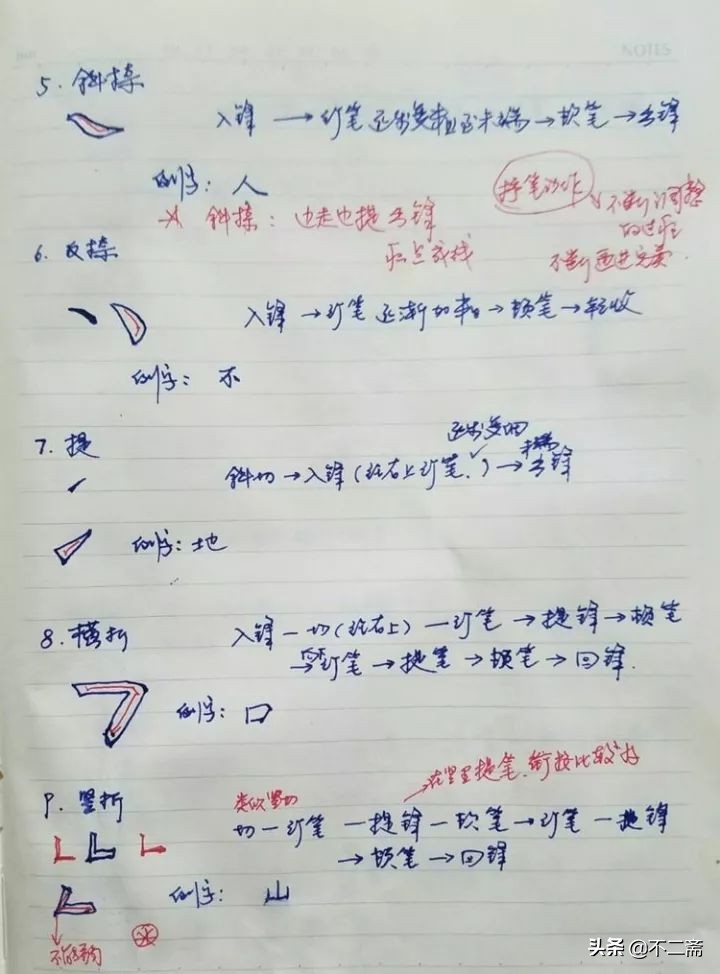 NOTES
5. 斜捺
入锋 → 行笔 逐渐变粗至末端 → 顿笔 → 出锋
例字：人
捺笔动作
不断调整
的过程
不断改进完善.
斜捺：边走边提出锋
6. 反捺
入锋 → 行笔 逐渐加粗 → 顿笔 → 轻收
例字：不
7. 提
逐渐变细
末端
斜切 → 入锋 (往右上行笔.) → 出锋
例字：地
8. 横折
入锋 — 切(往右上) — 行笔 → 提锋 → 顿笔
→ 行笔 → 提笔 → 顿笔 → 回锋.
例字：口
在竖里提笔.衔接比较好
9. 竖折
类似竖切
切 — 行笔 — 提锋 — 顿笔 → 行笔 — 提锋
→ 顿笔 → 回锋
例字：山
头条 @不二斋